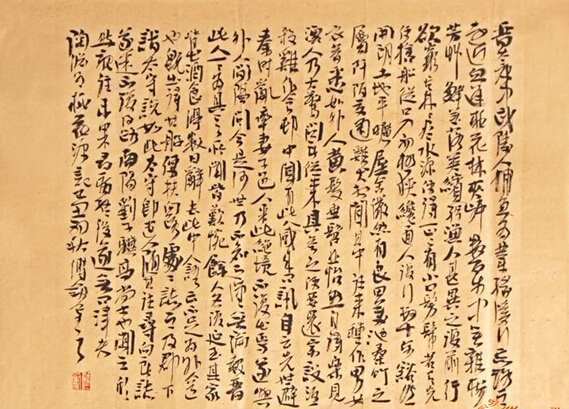 晉太康中武陵人捕魚為業緣溪行忘路之
遠近忽逢桃花林夾岸數百步中無雜樹
芳草鮮美落英繽紛漁人甚異之復前行
欲窮其林林盡水源便得一山山有小口髣髴若有光
便捨船從口入初極狹纔通人復行數十步豁然
開朗土地平曠屋舍儼然有良田美池桑竹之
屬阡陌交通雞犬相聞其中往來種作男女
衣著悉如外人黃髮垂髫並怡然自樂見
漁人乃大驚問所從來具答之便要還家設酒
殺雞作食村中聞有此人咸來問訊自云先世避
秦時亂率妻子邑人來此絕境不復出焉遂與
外人間隔問今是何世乃不知有漢無論魏晉
此人一一為具言所聞皆歎惋餘人各復延至其家
皆出酒食停數日辭去此中人語云不足為外人道
也既出得其船便扶向路處處誌之及郡下
詣太守說如此太守即遣人隨其往尋向所誌
遂迷不復得路南陽劉子驥高尚士也聞之欣
然規往未果尋病終後遂無問津者
陶淵明桃花源記